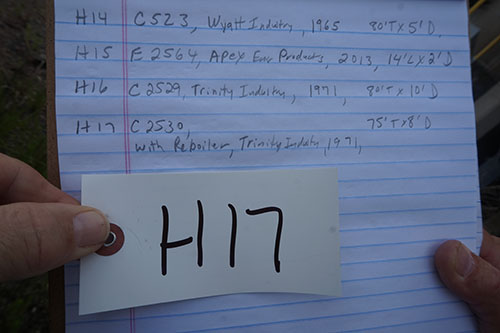 H14 C523, Wyatt Industry, 1965 80'T X 5' D,
H15 E2564, Apex Products, 2013, 14'L X 2' D
H16 C2529, Trinity Industry, 1971, 80'T X 10' D
H17 C2530, 75'T X 8' D
with Reboiler, Trinity Industry, 1971,
H17